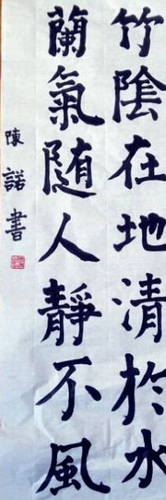 竹陰在地清於水
蘭氣随人靜不風
陳諾書